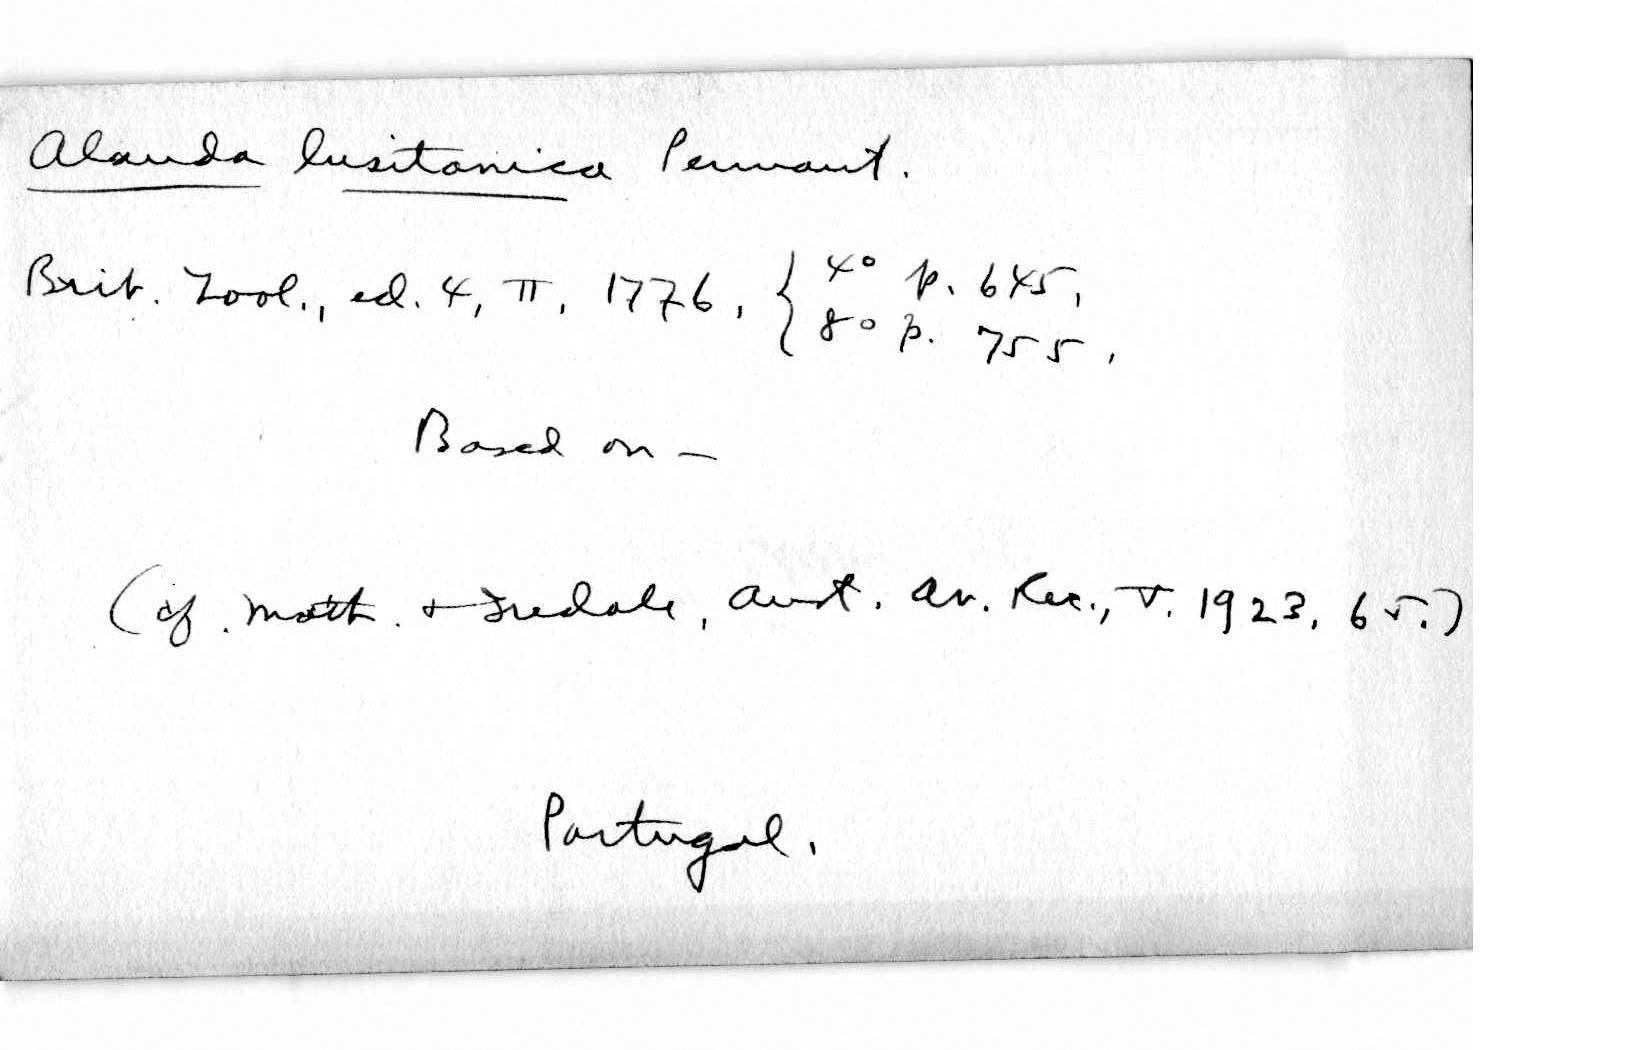 Alauda lusitanica Pennant.
Brit. Zool., ed. 4, II, 1776, { 4° p. 645,
8° p. 755,
Based on —
(cf. Math. & Iredale, Aust. Av. Rec., V. 1923, 65.)
Portugal.